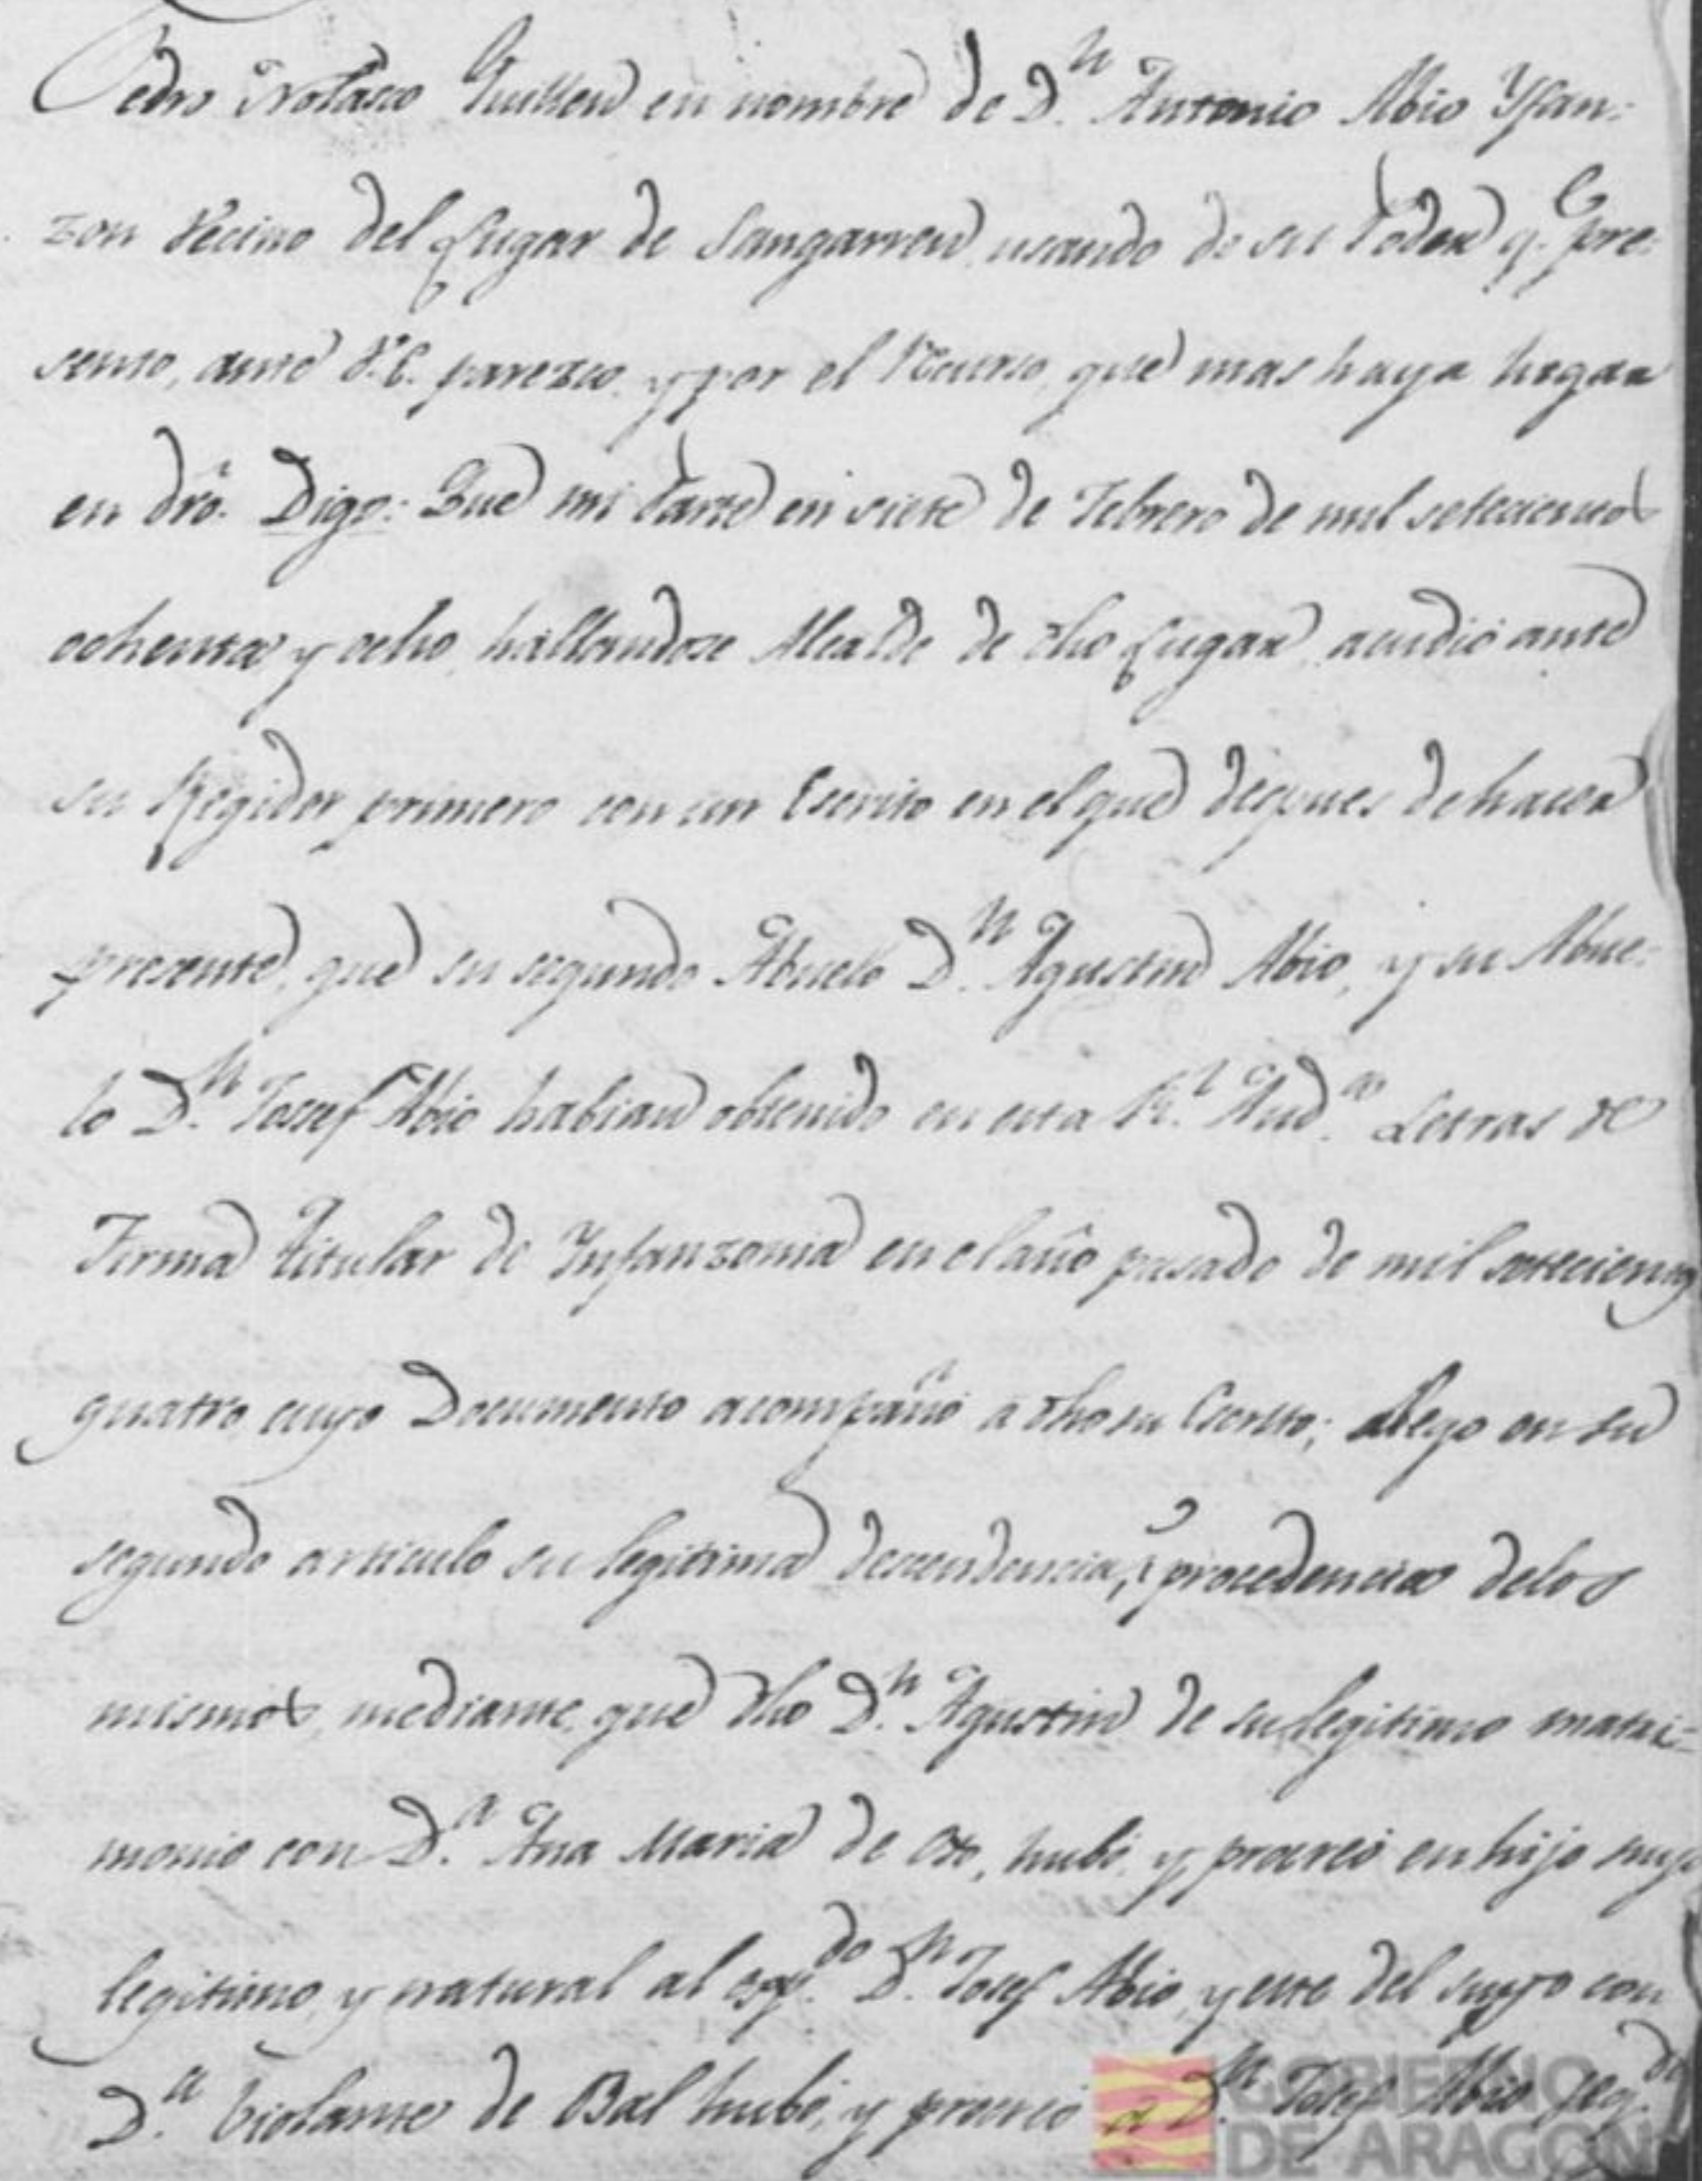 Pedro Nolasco Guillen en nombre de D.n Antonio Abio Ynfan-
zon Vecino del Lugar de Sangarren, usando de su Poder q.e pre-
sento, ante V.E. parezco, y por el Recurso, que mas haya lugar
en dro. Digo: Que mi Parte en siete de Febrero de mil setecientos
ochenta y ocho, hallandose Alcalde de dho Lugar, acudió ante
su Regidor primero con un Escrito en el que despues de hacer
presente, que su segundo Abuelo D.n Agustin Abio, y su Abue-
lo D.n Josef Abio habian obtenido en esta R.l Aud.a Letras de
Firma titular de Infanzonia en el año pasado de mil setecientos
quatro, cuyo Documento acompañó a dho su Escrito; Alego en su
segundo articulo su legitima descendencia, y procedencia delos
mismos, mediante, que dho D.n Agustin de su legitimo matri-
monio con D.a Ana Maria de Oto, hubo, y procreó en hijo suyo
legitimo, y natural al exp.do D.n Josef Abio, y este del suyo con
D.a Violante de Bal hubo, y procreó a D.n Josef Abio seg.do
GOBIERNO
DE ARAGON